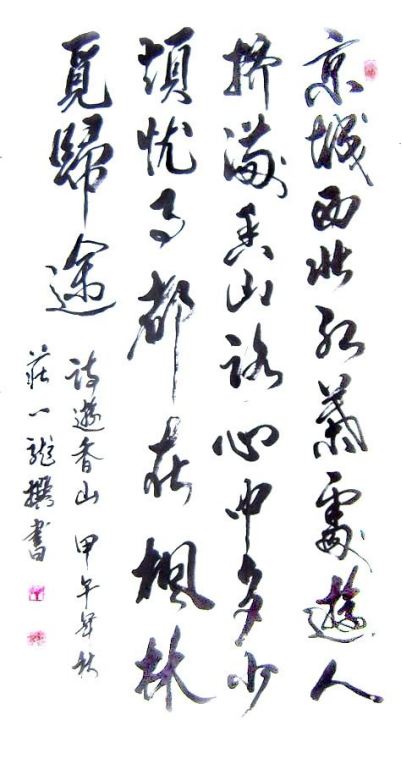 京城西北紅葉處遊人
擠滿香山路心中多少
煩忧事都在楓林
覓歸途
詩遊香山 甲午年秋
莊一龍撰書